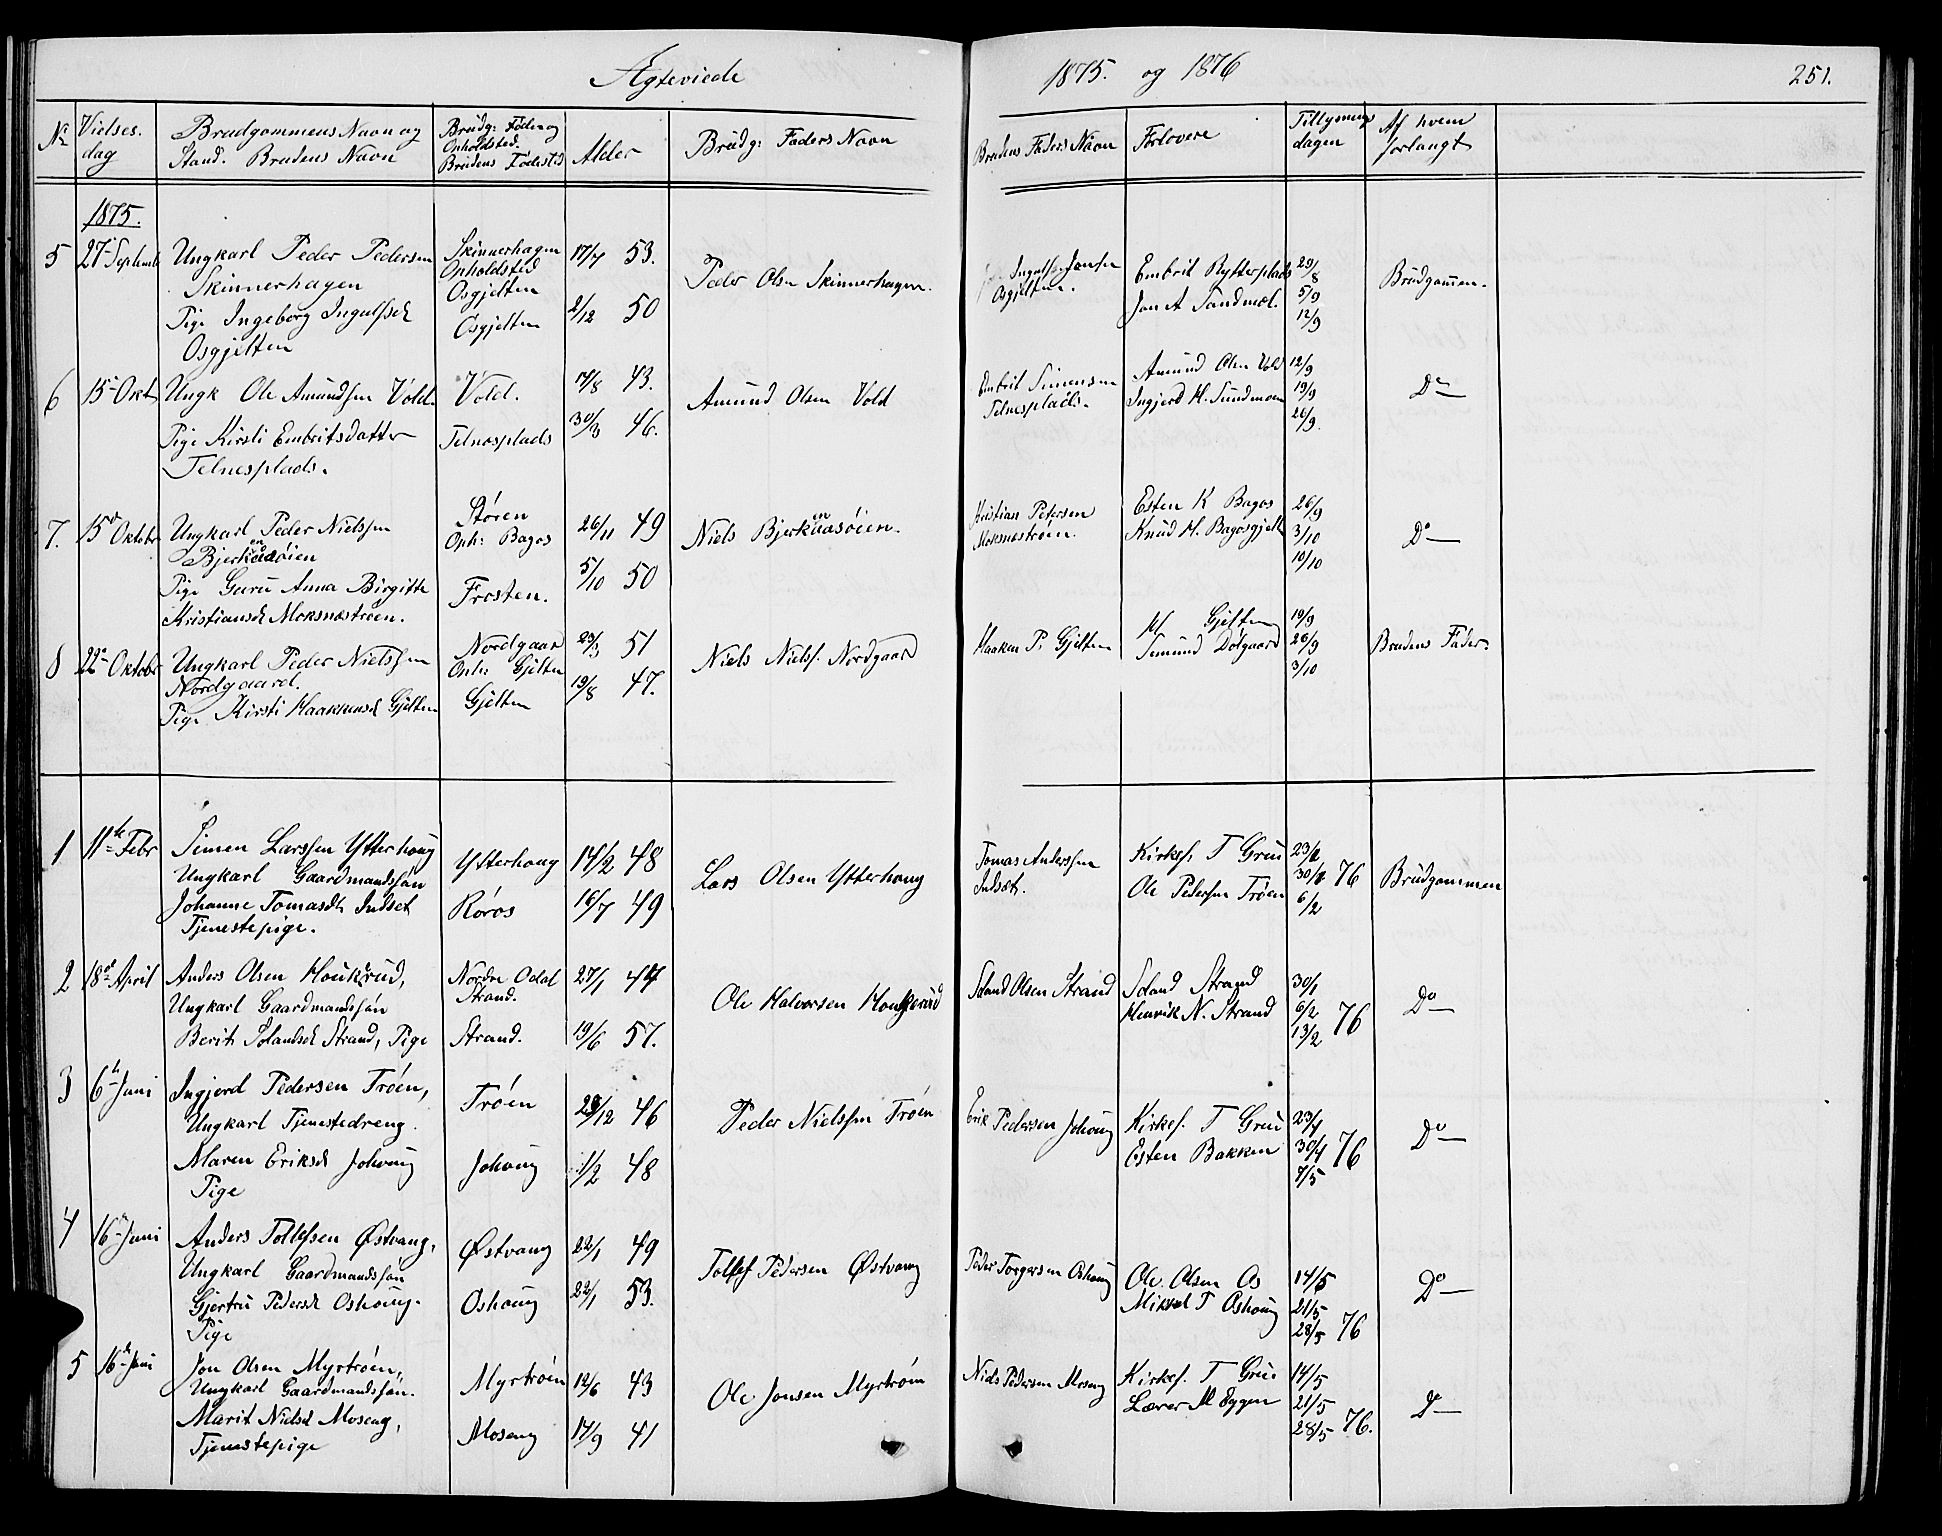 Ægteviede 1875. og 1876 251.
No Vielses. dag Brudgommens Navn og Stand. Brudens Navn Brudg: Føde og Opholdsted. Brudens Fødested Alder Brudg: Faders Navn Brudens Faders Navn Forlovere Tillysnings dagen Af hvem forlangt
1875.
5 27de Septemb Ungkarl Peder Pedersen Skinnerhagen
Pige Ingeborg Ingulfsd. Osgjelten
Skinnerhagen Opholdsted Osgjelten
Osgjelten
17/7 53.
2/12 50
Peder Olsen Skinnerhagen.
Ingulf Jonsen Osgjelten.
Embrit Rytterplads
Jon A Sandmæl.
29/8
5/9
12/9
Brudgommen.
6 15de Okt Ungk Ole Amundsen Vold.
Pige Kirsti Embritsdatter
Telnesplads.
Vold.
Telnesplads
14/8 43.
30/3 46.
Amund Olsen Vold
Embrit Simensen
Telnesplads.
Amund Olsen Vold
Ingjerd H. Sundmoen
12/9
19/9
26/9.
Do
7. 15de Oktobr Ungkarl Peder Nielssen
Bjerkenaasøien
Pige Guru Anna Birgitte
Kristiansd. Moksnæstrøen.
Støren
Oph: Bagos
Frosten.
26/11 49
5/10 50
Niels Bjerkenaasøien.
Kristian Petersen
Moksnæstrøen.
Esten K Bagos
Knud H. Bagosgjelt
26/9
3/10
10/10
Do
8 22de Oktobr Ungkarl Peder Nielssen
Nordgaard.
Pige Kirsti Haakensd Gjelten
Nordgaard
Oph: Gjelten
Gjelten
23/3 51
19/8 47.
Niels Niels. Nordgaard
Haaken P. Gjelten
Gjelten
Simund Dølgaard
19/9
26/9
3/10
Brudens Fader
1 11te Febr Simen Larssen Ytterhoug
Ungkarl Gaardmandssøn
Johanne Tomasdt. Indset
Tjenestepige.
Ytterhoug
Røros
14/2 48
16/7 49
Lars Olsen Ytterhoug
Tomas Anderssen
Indset.
Kirkes. T Grue
Ole Pedersen Trøen
23/1
30/1 76
6/2
Brudgommen
2 18de April Anders Olsen Houkerud,
Ungkarl Gaardmandssøn
Berit Solandsd Strand, Pige
Nordre Odal
Strand.
Strand.
27/1 44
19/6 57.
Ole Halvorsen Houkerud
Soland Olsen Strand
Soland Strand
Henrik N. Strand
30/1
6/2 76
13/2
Do
3 6te Juni Ingjerd Pedersen Trøen,
Ungkarl Tjenestedreng.
Maren Eriksd Johoug
Pige
Trøen
Johoug
28/12 46
1/2 48
Peder Nielssen Trøen
Erik Pedersen Johoug
Kirkes. T Grue
Esten Bakken
23/4
30/4 76
7/5
Do
4 16de Juni Anders Tollefsen Østvang,
Ungkarl Gaardmandssøn
Gjertru Pedersd Oshoug.
Pige
Østvang
Oshoug
22/1 49
22/1 53.
Tollef Pedersen Østvang
Peder Torgersen Oshoug
Ole Olsen Os
Mikkel T Oshoug
14/5
21/5
28/5 76
Do
5 16de Juni Jon Olsen Myrtrøen,
Ungkarl Gaardmandssøn.
Marit Nielsd Moseng,
Tjenestepige
Myrtrøen
Moseng
12/6 43
14/9 41
Ole Jonsen Myrtrøen
Niels Pedersen Moseng
Kirkes. T Grue
Lærer M Eggen
14/5
21/5
28/5 76.
Do